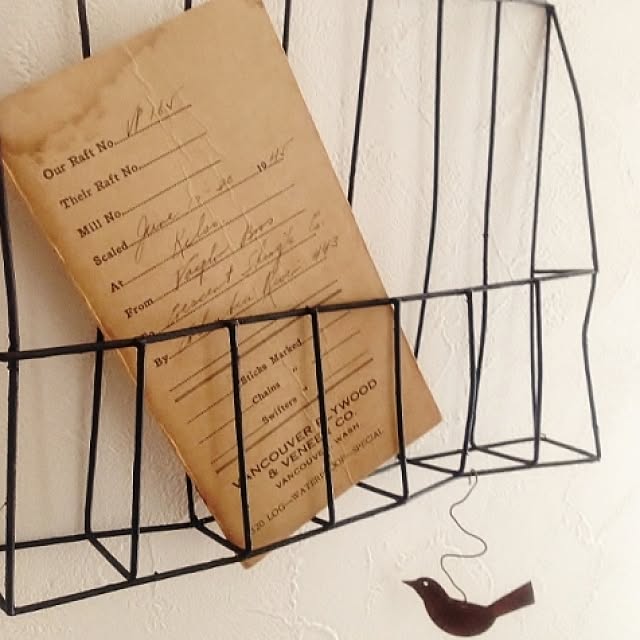 Our Raft No. VP 165
Their Raft No.
Mill No.
Scaled June 1945
At Kelso
From Bros
Crescent Shingle Co
By
Sticks Marked
Chains "
Swifters "
VANCOUVER PLYWOOD
& VENEER CO.
VANCOUVER, WASH
320 LOG—WATERPROOF—SPECIAL